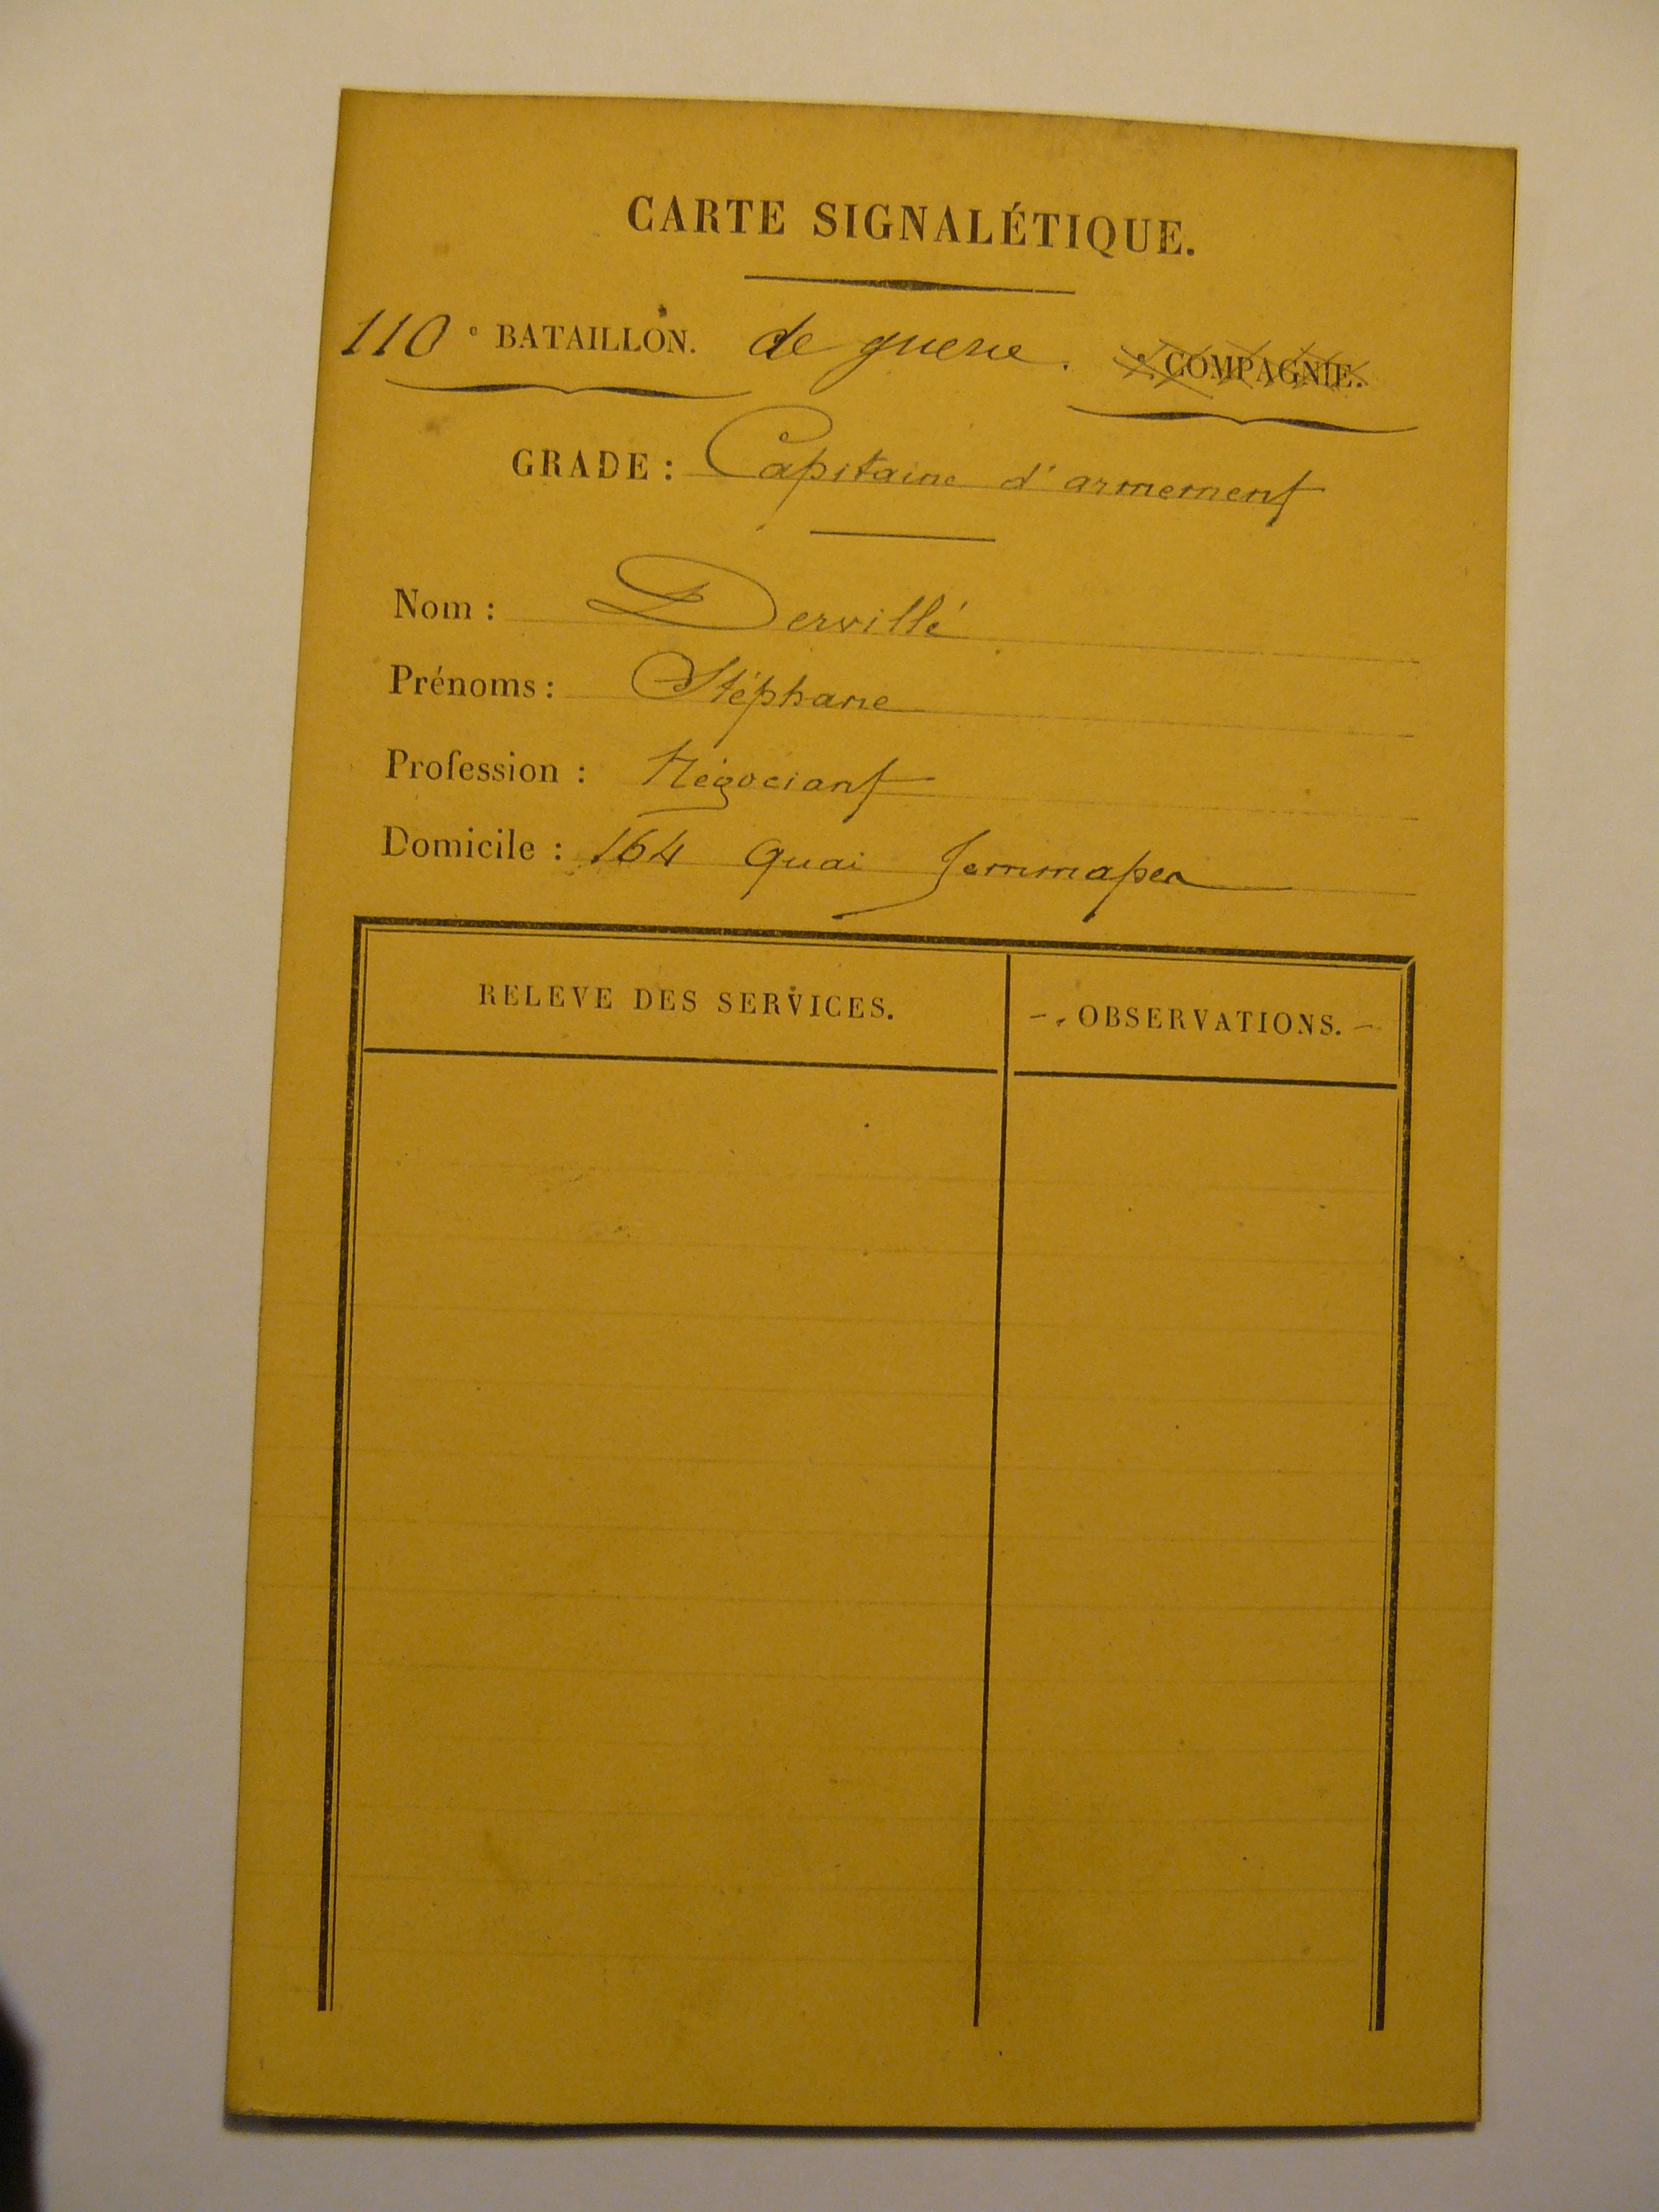 CARTE SIGNALÉTIQUE.
110 e BATAILLON. de guerre. e COMPAGNIE.
GRADE : Capitaine d'armement
Nom : Dervillé
Prénoms : Stéphane
Profession : Négociant
Domicile : 164 Quai Jemmapes
RELEVE DES SERVICES. OBSERVATIONS.